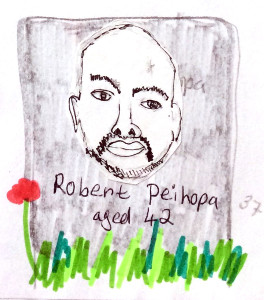 Robert Peihopa
aged 42
37